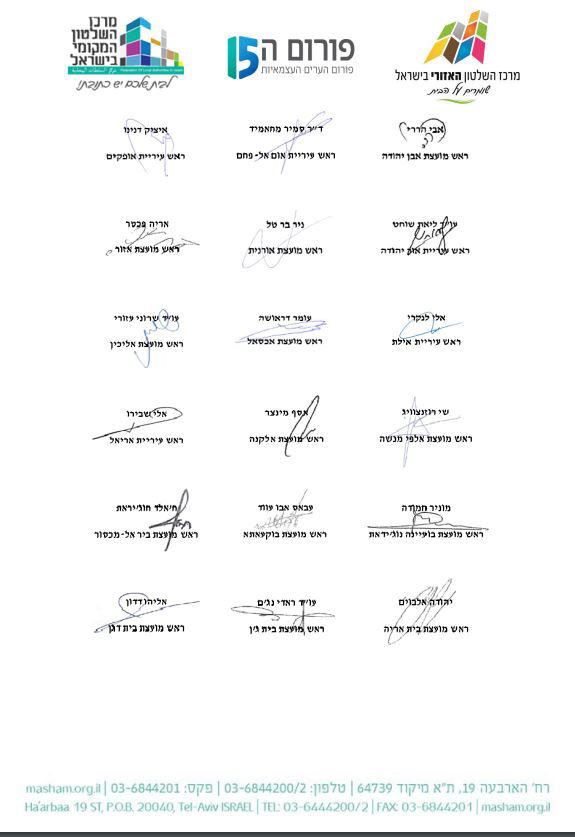 מרכז השלטון האזורי בישראל
שומרים על הבית
פורום ה15
פורום הערים העצמאיות
מרכז
השלטון
המקומי
בישראל
Federation Of Local Authorities In Israel
לבית שלכם יש כתובת!
אבי הררי
ראש מועצת אבן יהודה
ד"ר סמיר מחאמיד
ראש עיריית אום אל- פחם
איציק דנינו
ראש עיריית אופקים
עו"ד ליאת שוחט
ראש עיריית אור יהודה
ניר בר טל
ראש מועצת אורנית
אריה פכטר
ראש מועצת אזור
אלי לנקרי
ראש עיריית אילת
עומר דראושה
ראש מועצת אכסאל
עו"ד שרוני עזורי
ראש מועצת אליכין
שי רוזנצוויג
ראש מועצת אלפי מנשה
אסף מינצר
ראש מועצת אלקנה
אלי שבירו
ראש עיריית אריאל
מוניר חמודה
ראש מועצת בועיינה נוג'ידאת
עבאס אבו עווד
ראש מועצת בוקעאתא
ח'אלד חוג'יראת
ראש מועצת ביר אל-מכסור
יהודה אלבוים
ראש מועצת בית אריה
עו"ד ראדי נג'ם
ראש מועצת בית ג'ן
אליהו דדון
ראש מועצת בית דגן
רח' הארבעה 19, ת"א מיקוד 64739 | טלפון: 03-6844200/2 | פקס: 03-6844201 | masham.org.il
Ha'arbaa 19 ST, P.O.B. 20040, Tel-Aviv ISRAEL | TEL: 03-6444200/2 | FAX: 03-6844201 | masham.org.il